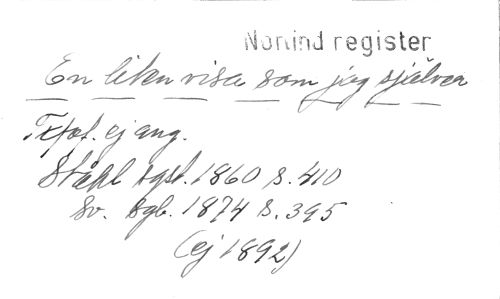 Norlind register
En liten visa som jag själver
Txtf. ej ang.
Ståhl sgsl. 1860 s. 410
Sv. sgb. 1874 s. 395
(ej 1892)